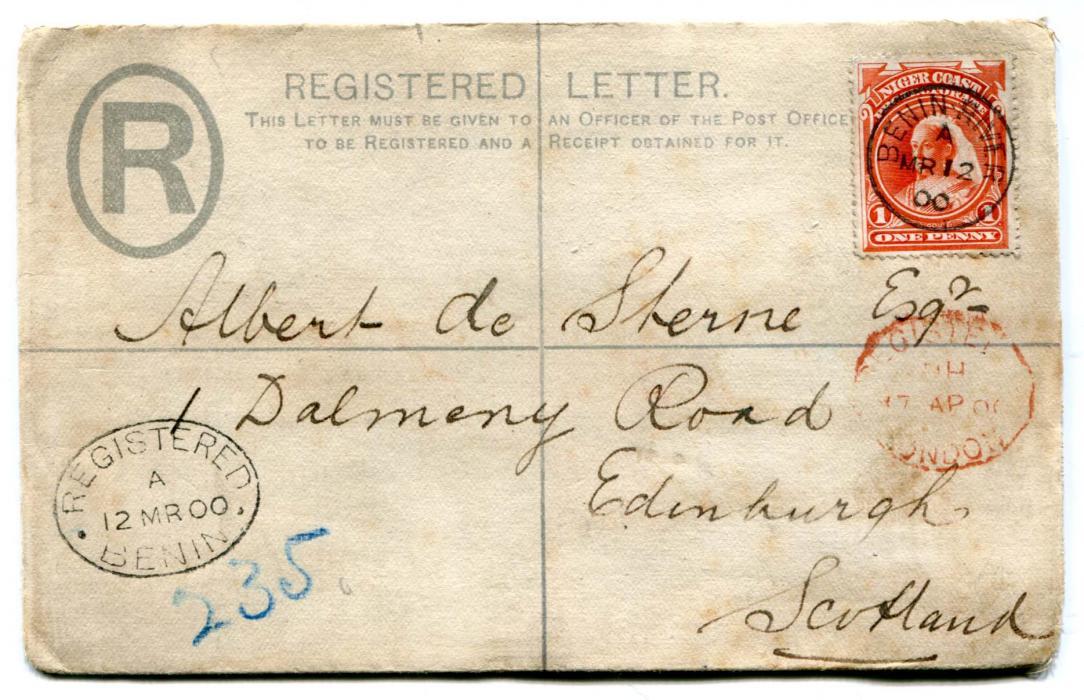 R
REGISTERED LETTER.
THIS LETTER MUST BE GIVEN TO AN OFFICER OF THE POST OFFICE
TO BE REGISTERED AND A RECEIPT OBTAINED FOR IT.
NIGER COAST
PROTECTORATE
1 1
ONE PENNY
BENIN RIVER
A
MR 12
00
Albert de Sterne Esqr
1 Dalmeny Road
Edinburgh
Scotland
REGISTERED
17 AP 00
LONDON
REGISTERED
A
12 MR 00
BENIN
235